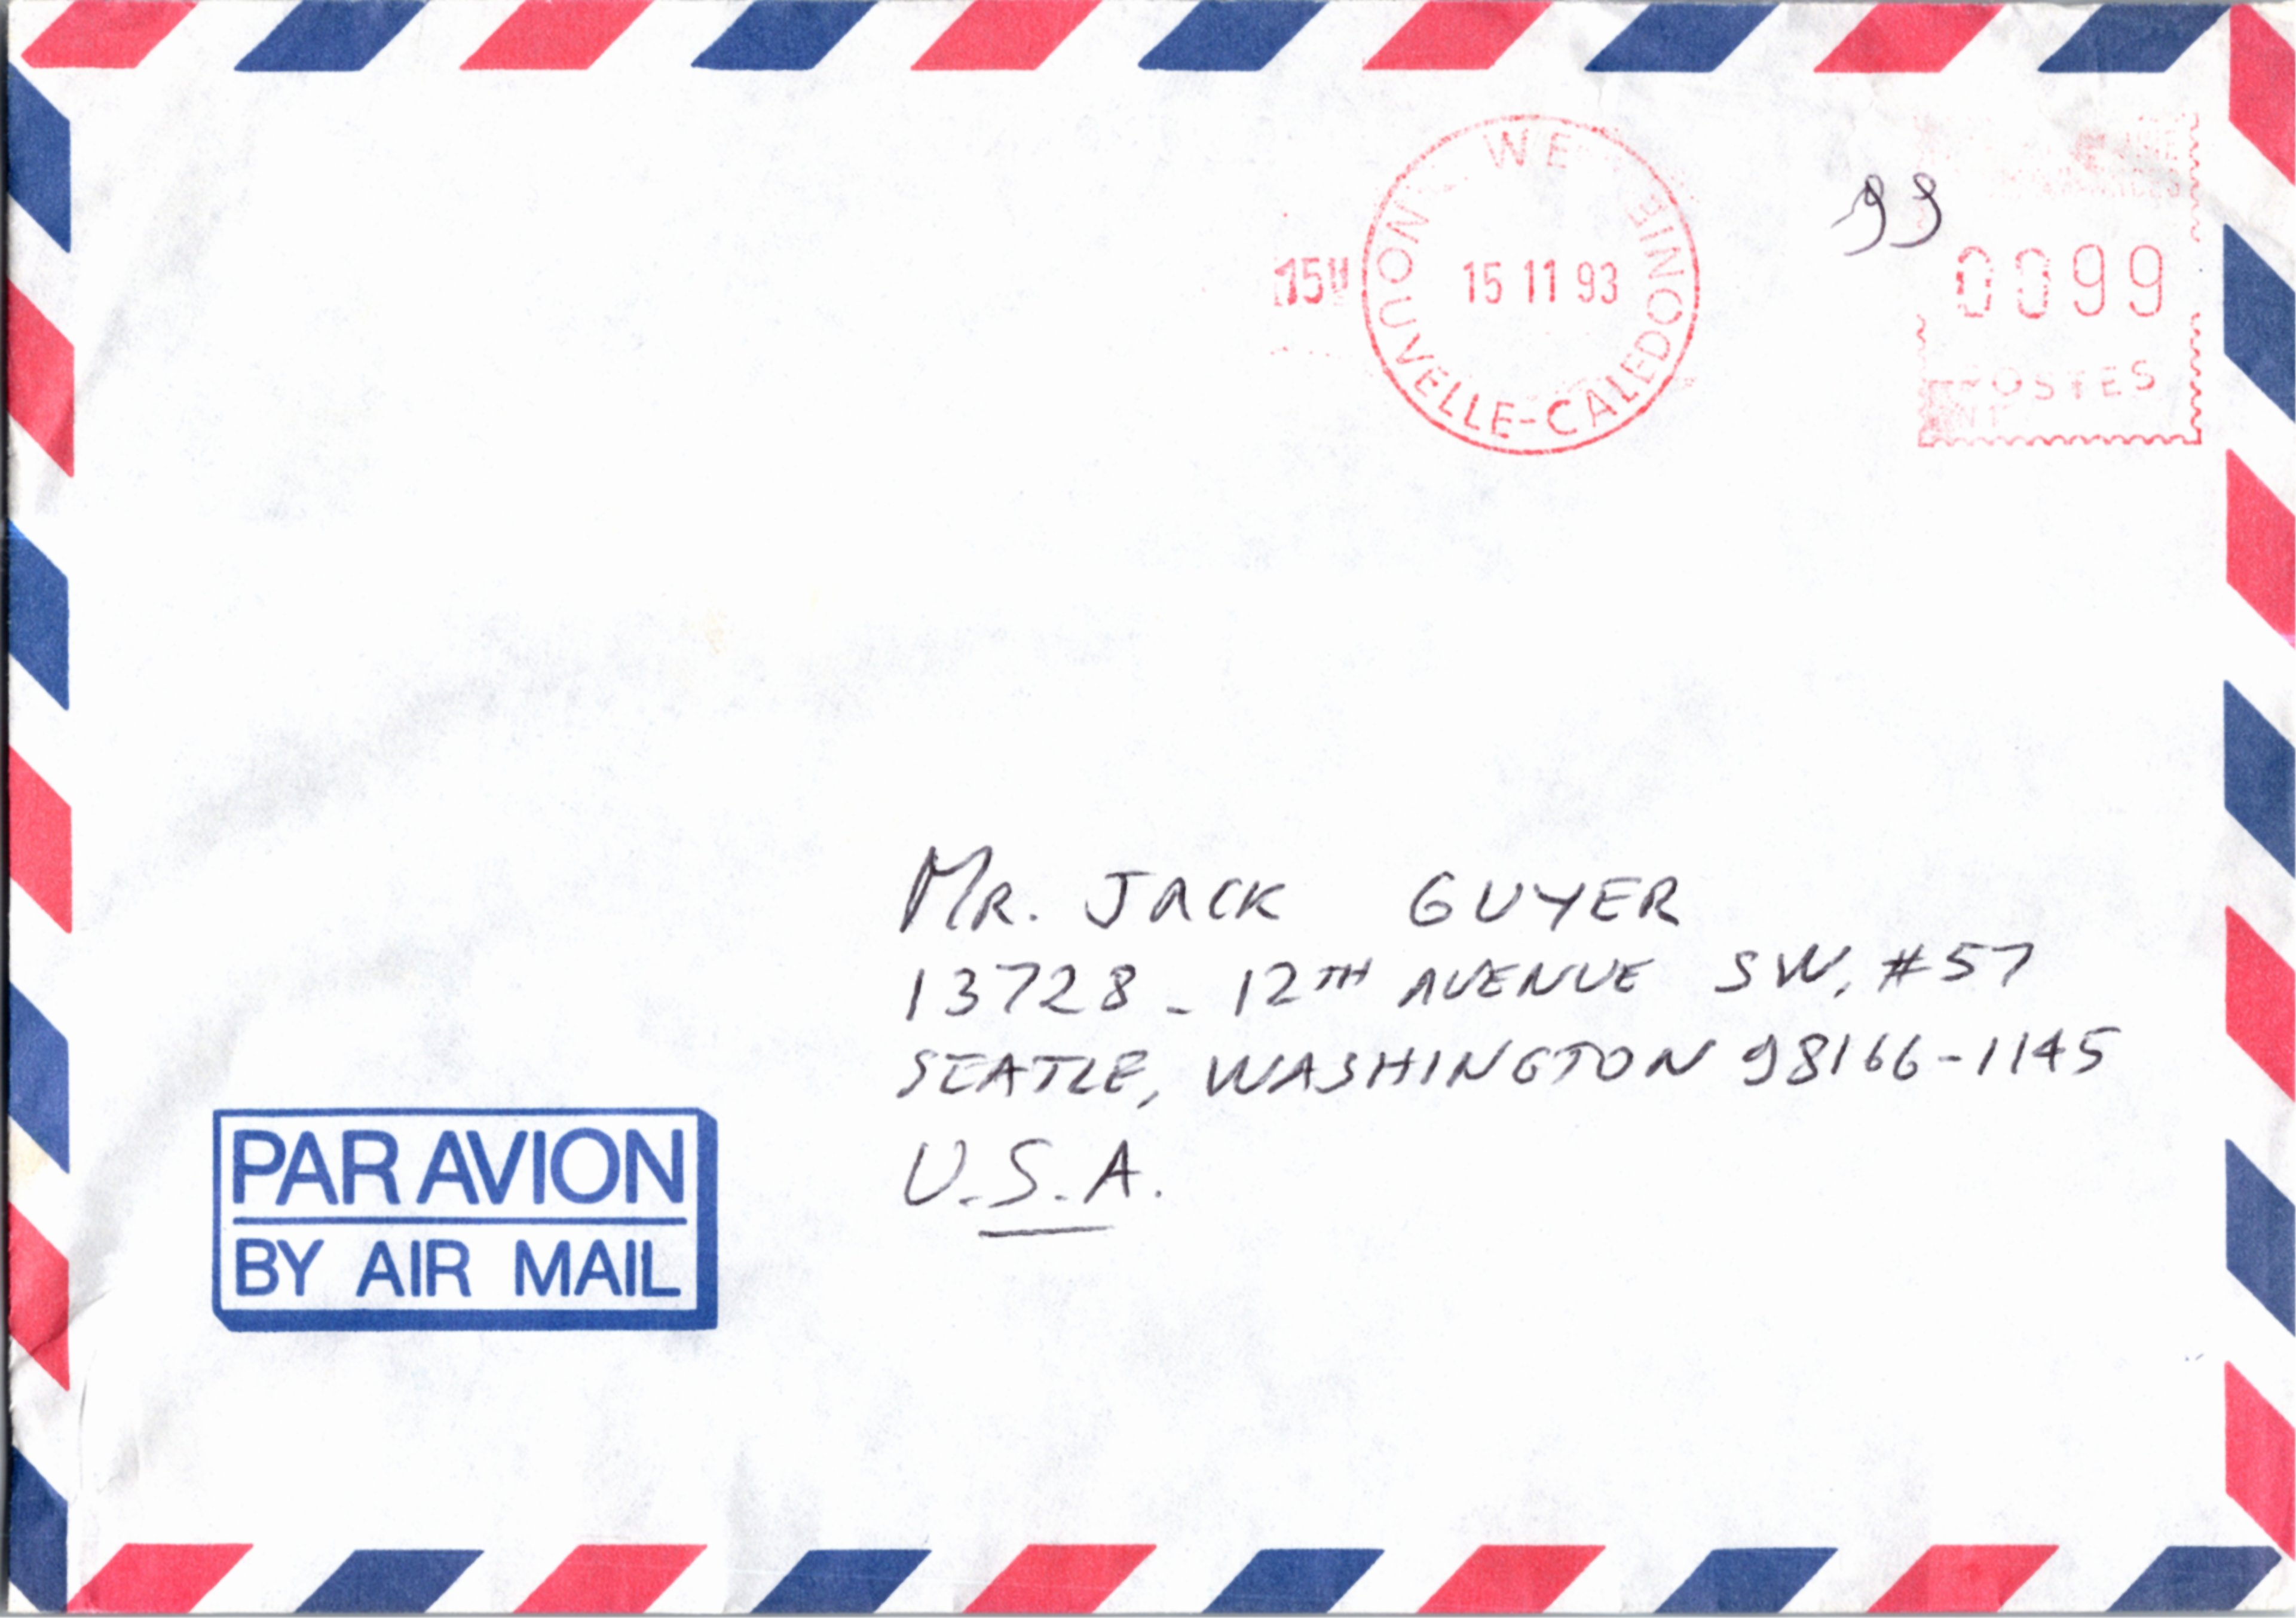 WE
NOUVELLE-CALEDONIE
15H
15 11 93
99
0099
POSTES
MR. JACK GUYER
13728 - 12TH AVENUE SW, #57
SEATLE, WASHINGTON 98166-1145
U.S.A.
PAR AVION
BY AIR MAIL